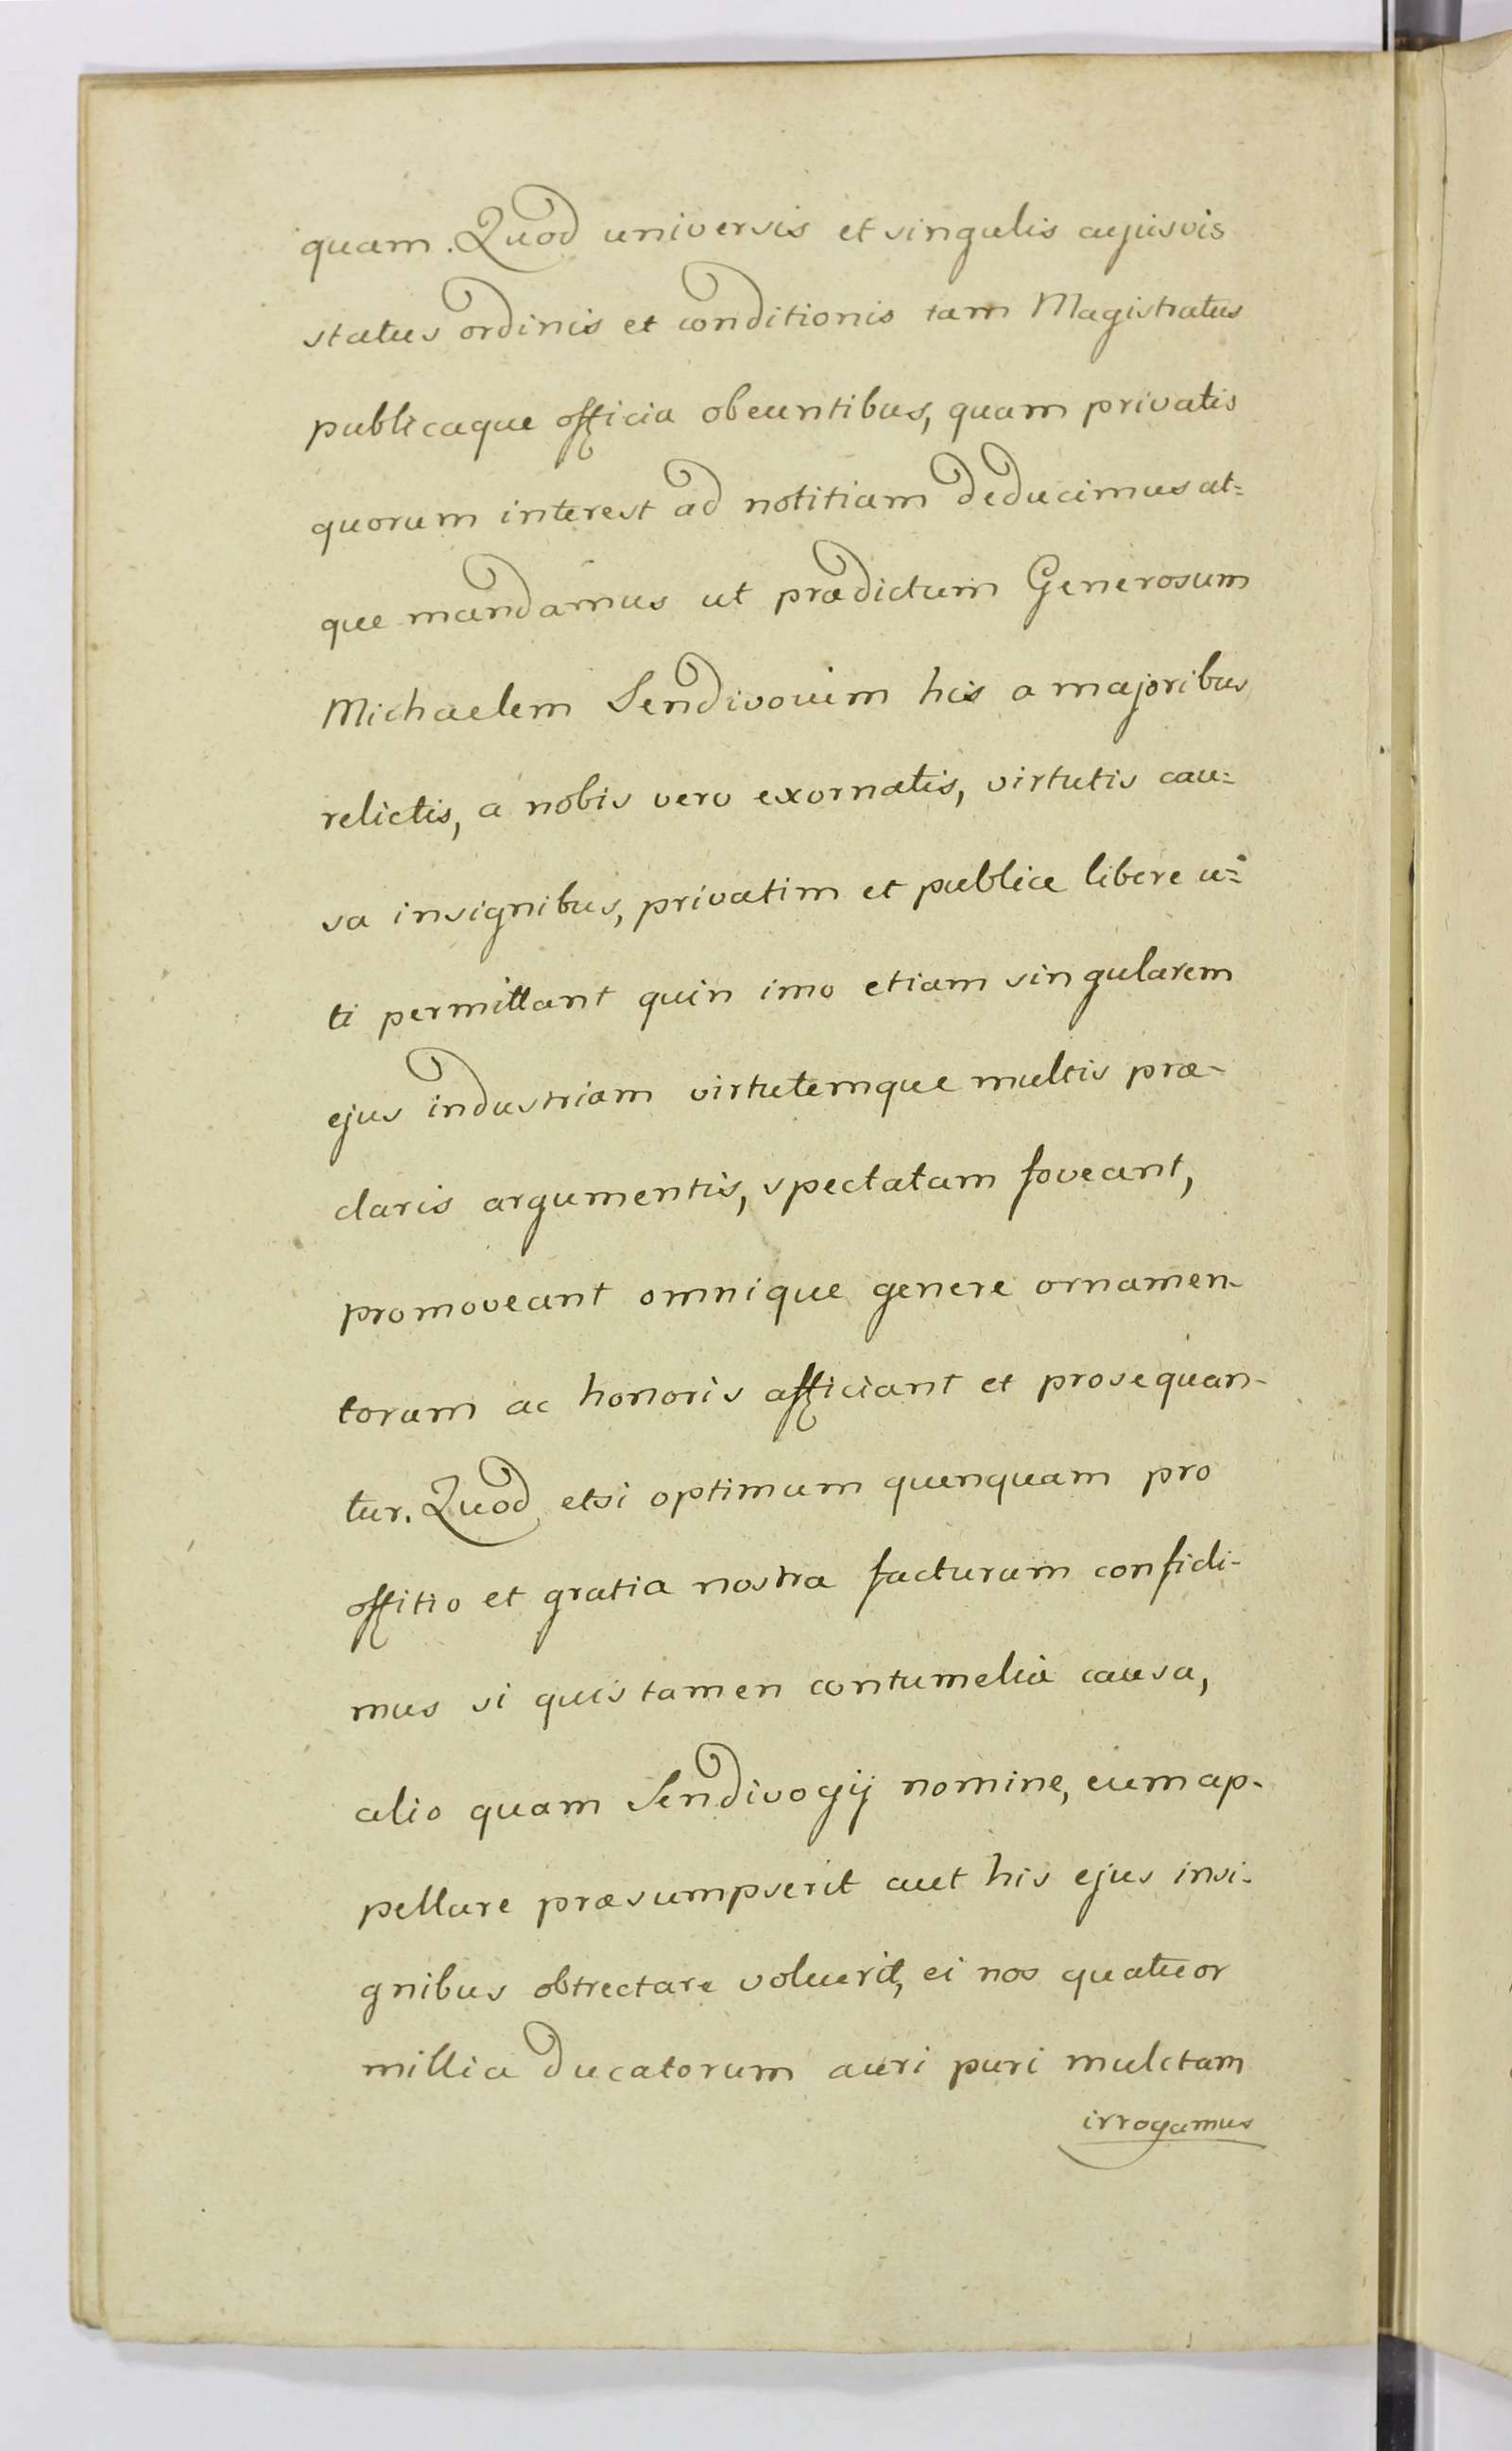 quam. Quod universis et singulis cujusvis
status ordinis et conditionis tam Magistratus
publicaque officia obeuntibus, quam privatis
quorum interest ad notitiam deducimus at=
que mandamus ut prædictum Generosum
Michaelem Sendivovim his a majoribus
relictis, a nobis vero exornatis, virtutis cau=
sa insignibus, privatim et publice libere u=
ti permittant quin imo etiam singularem
ejus industriam virtutemque multis præ-
claris argumentis, spectatam foveant,
promoveant omnique genere ornamen-
torum ac honoris afficiant et prosequan-
tur. Quod etsi optimum quenquam pro
offitio et gratia nostra facturum confidi-
mus si quis tamen contumelia causa,
alio quam Sendivogij nomine, eum ap-
pellare præsumpserit aut his ejus insi-
gnibus obtrectare voluerit, ei nos quatuor
millia Ducatorum auri puri mulctam
irrogamus